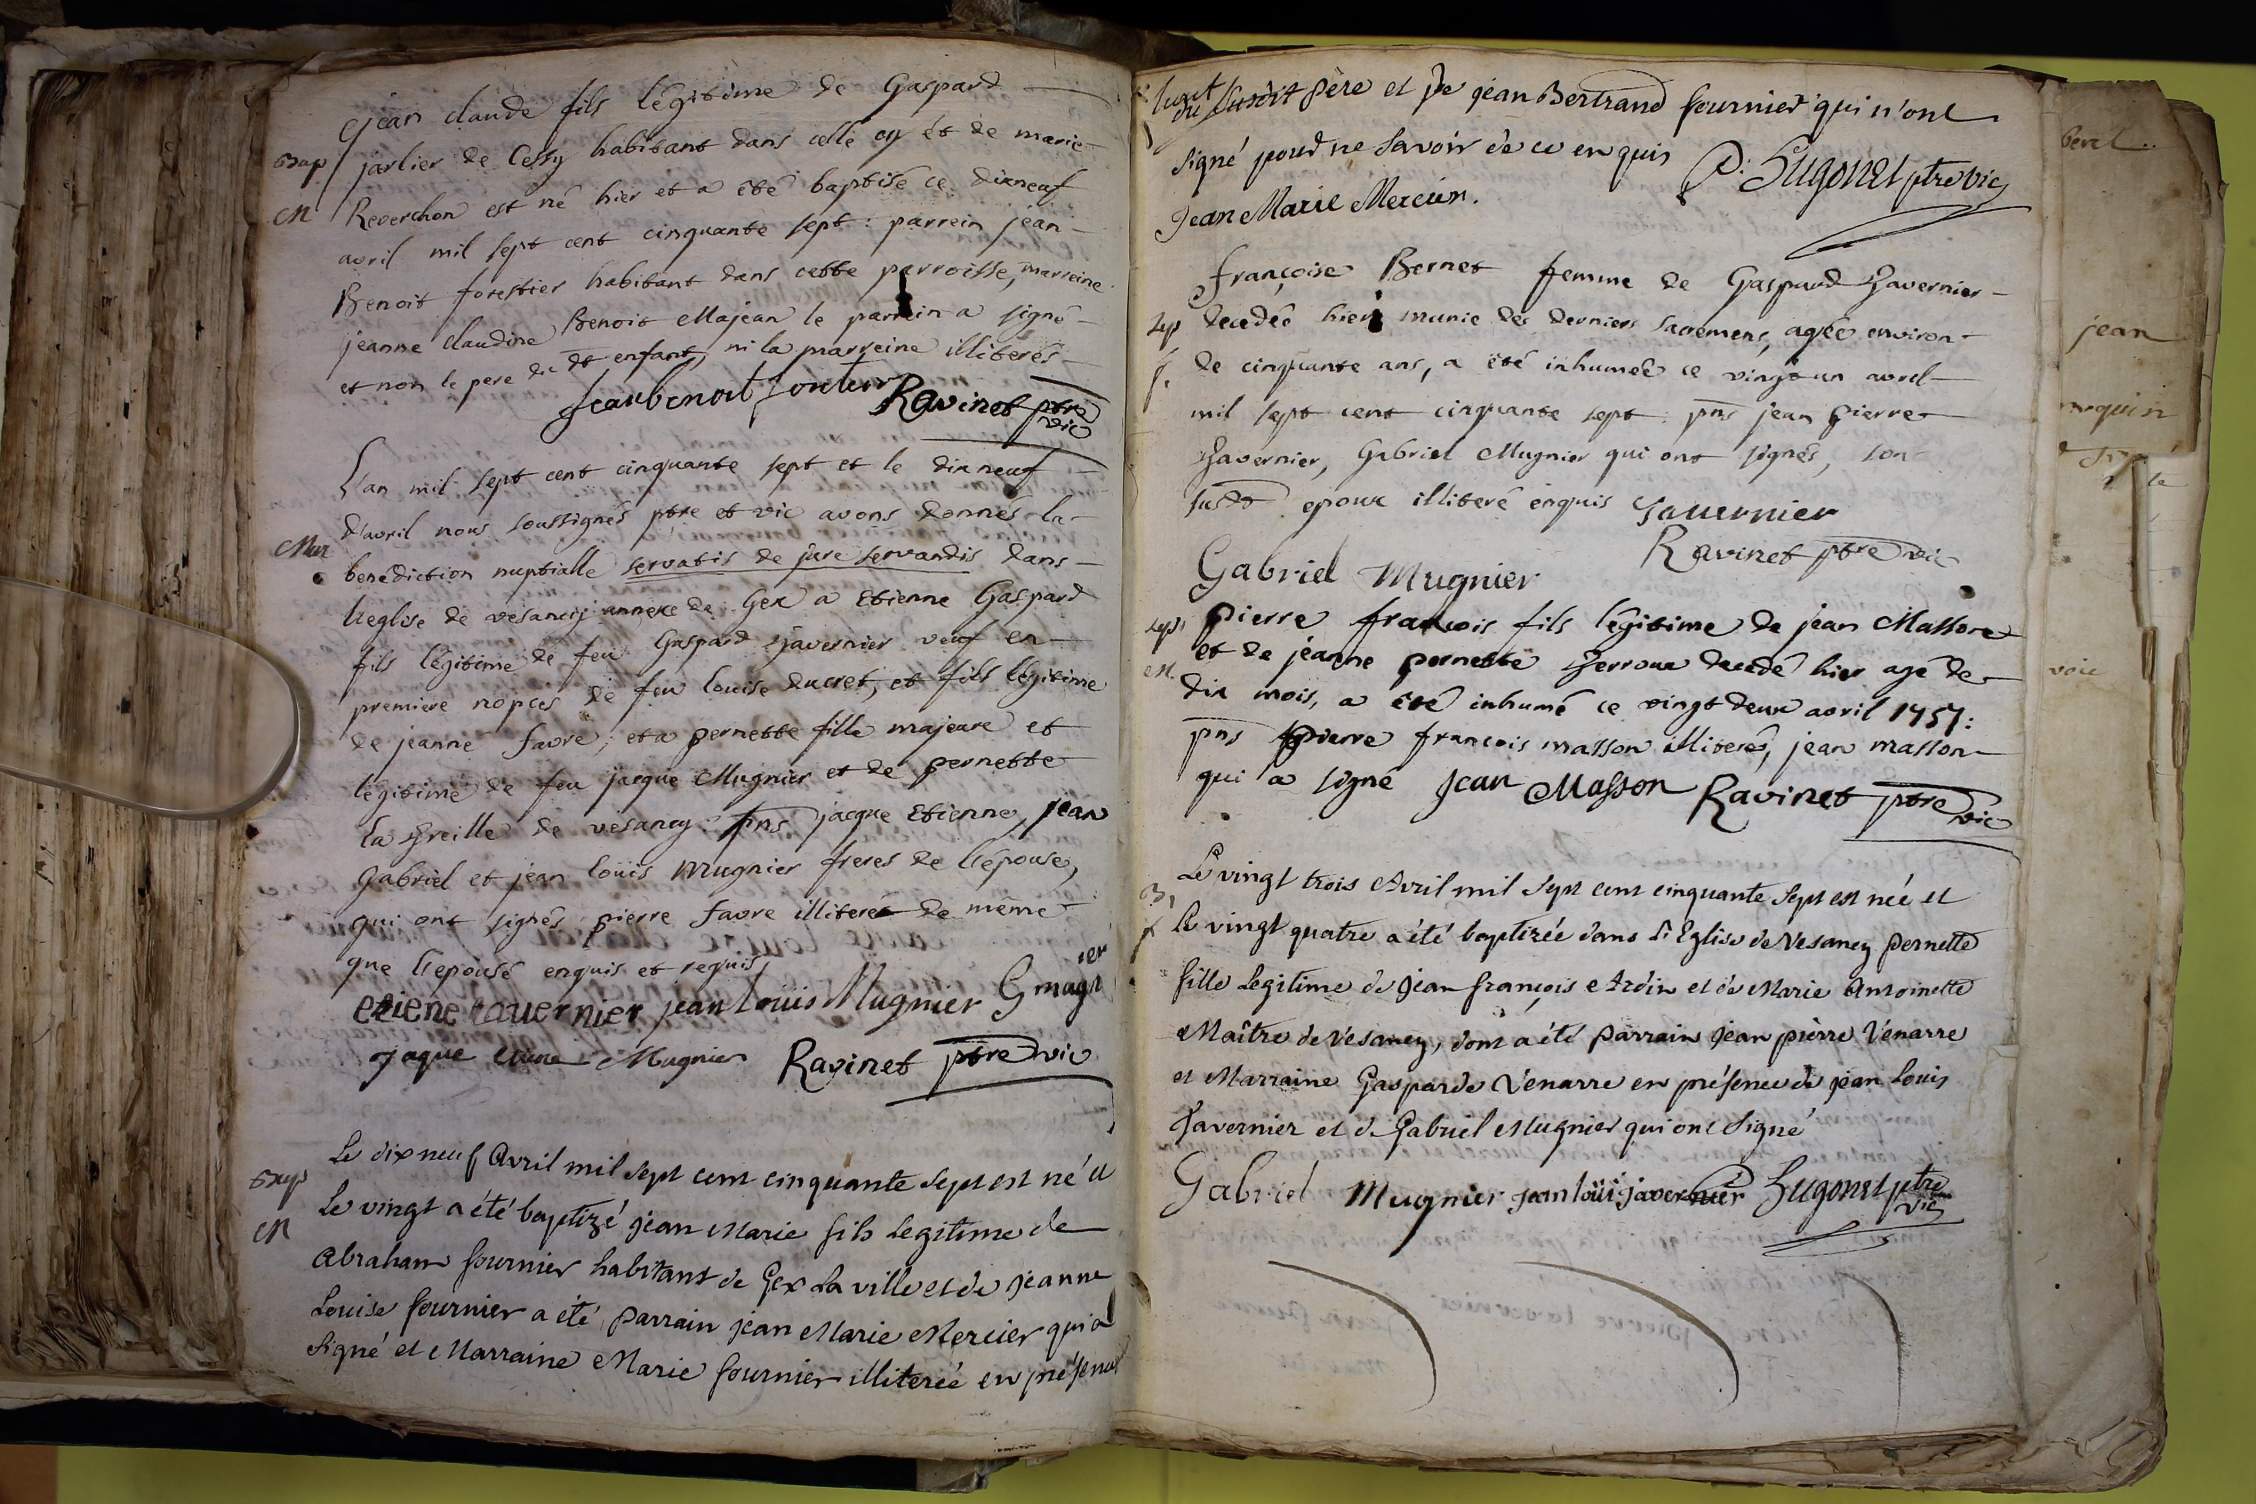 jean claude fils légitime de Gaspard
Bap jarlier de Cessy habitant dans celle cy et de marie
M Reverchon est né hier et a été baptisé ce dixneuf
avril mil sept cent cinquante sept : parrein jean
Benoit forestier habitant dans cette parroisse, marreine
jeanne claudine Benoit Majean le parrein a signé
et non le pere du dt enfant, ni la marreine illiterés
jeanbenoit Ravinet ptre vic
L'an mil sept cent cinquante sept et le dix neuf
d'avril nous soussignés ptre et vic avons donnés la
Mar benediction nuptialle servatis de jure servandis dans
l'eglise de vesancy annexe de Gex a Etienne Gaspard
fils légitime de feu Gaspard javernier veuf en
premiere nopces de feu louise ducret, et fils légitime
de jeanne favre ; et a pernette fille majeure et
légitime de feu jacque Mugnier et de pernette
la greille de vesancy. pns jacque Etienne, jean
Gabriel et jean louis Mugnier freres de l'epouse,
qui ont signés pierre favre illiteré de même
que l'epouse enquis et requis
etiene javernier jean louis Mugnier G mugnier
jaque etiene Mugnier Ravinet ptre vic
Le dixneuf Avril mil sept cent cinquante sept est né et
Bap le vingt a été baptizé jean Marie fils legitime de
M Abraham fournier habitant de Gex la ville et de jeanne
Louise fournier a été parrain jean Marie Mercier qui a
signé et Marraine Marie fournier illiterée en présence
du susdit père et de jean Bertrand fournier qui n'ont
signé pour ne savoir de ce enquis P. Hugonet ptre vic
Jean Marie Mercier.
françoise Bernet femme de Gaspard Javernier
Sep decedée hier munie des derniers sacremens, agée environ
f. de cinquante ans, a été inhumée ce vingt un avril
mil sept cent cinquante sept : pns jean pierre
Javernier, Gabriel Mugnier qui ont signés, son
susdt epoux illiteré enquis javernier
Gabriel Mugnier Ravinet ptre vic
sep. pierre francois fils légitime de jean Masson
M. et de jeanne pernette Perroux decedé hier agé de
dix mois, a été inhumé ce vingt deux avril 1757 :
pns pierre francois masson illiteré, jean masson
qui a signé Jean Masson Ravinet ptre vic
Le vingt trois Avril mil sept cent cinquante sept est née et
B. le vingt quatre a été baptizée dans l'Eglise de Vesancy pernette
f fille legitime de jean françois Ardin et de Marie Antoinette
Maître de Vesancy, dont a été parrain jean pierre Venarre
et Marraine Gasparde Venarre en présence de jean Louis
Javernier et de Gabriel Mugnier qui ont signé
Gabriel Mugnier jean loüi javernier Hugonet ptre vic
jean
voie